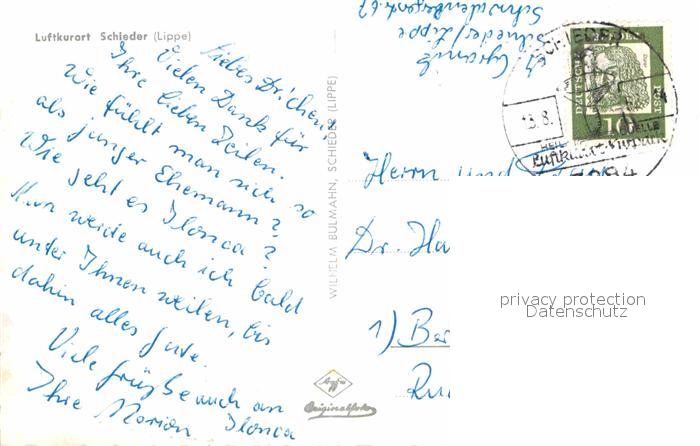 Luftkurort Schieder (Lippe)
Liebes Drichen,
Vielen Dank für
Ihre lieben Zeilen.
Wie fühlt man sich so
als junger Ehemann?
Wie geht es Ilonca?
Nun werde auch ich bald
unter Ihnen weilen, bis
dahin alles Gute.
Viele Grüße auch an
Ihre Ilonca
WILHELM BULMAHN, SCHIEDER (LIPPE)
Agfa
Originalfoto
Schieder/Lippe
SCHIEDER
13.8.
HEIL QUELLE
Luftkurort
DEUTSCHE BUNDESPOST
10
Herrn und
Dr. Ha
1) Be
privacy protection
Datenschutz